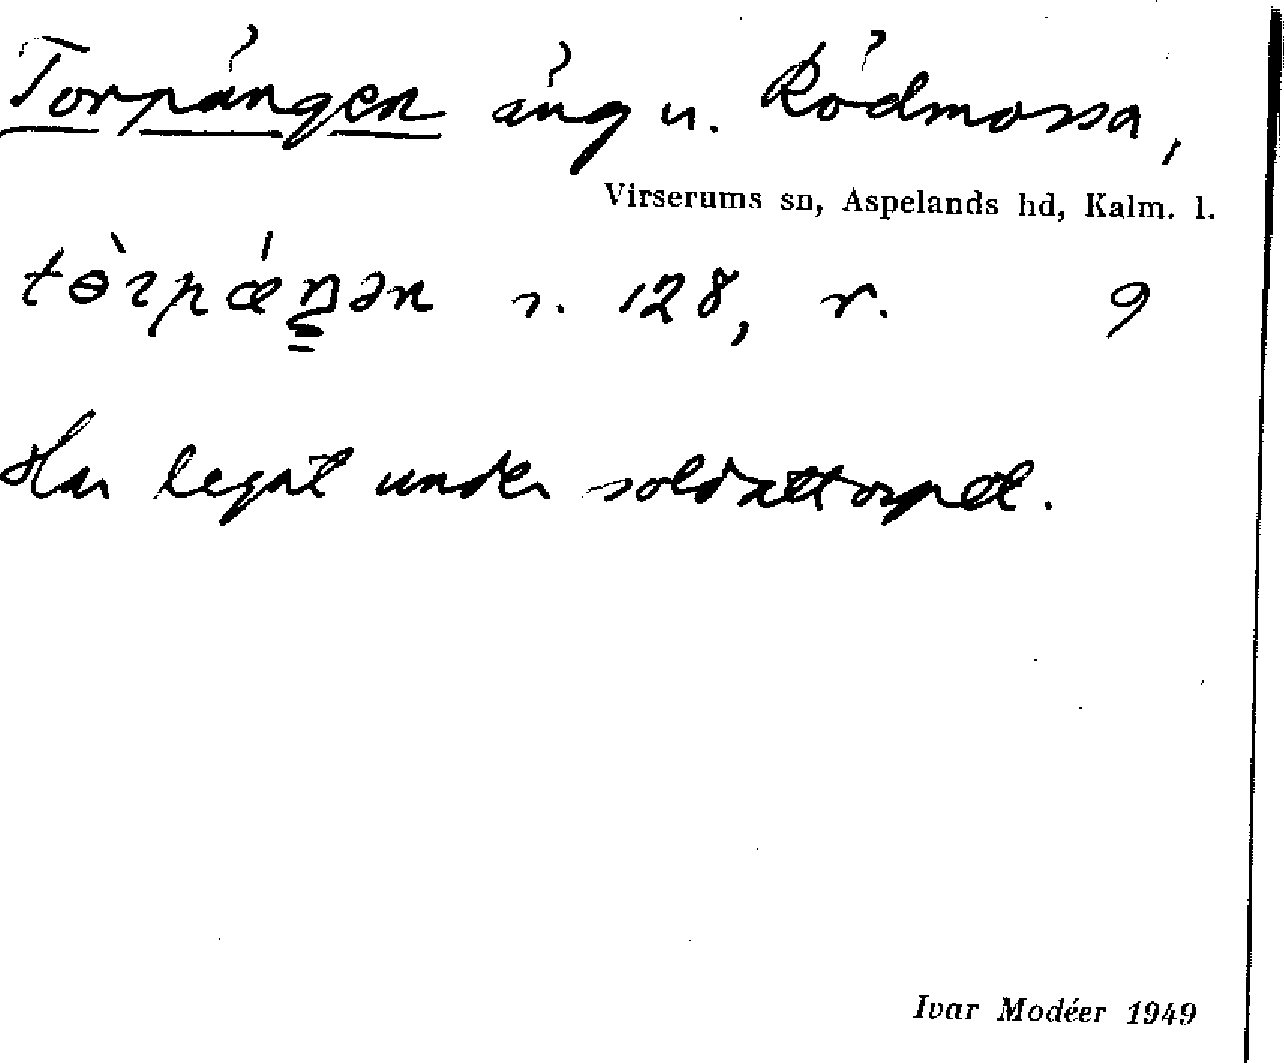 Torpängen äng u. Rödmossa,
Virserums sn, Aspelands hd, Kalm. l.
tɵ̀rpǽŋən s. 128, r. 9
Har legat under soldattorpet.
Ivar Modéer 1949